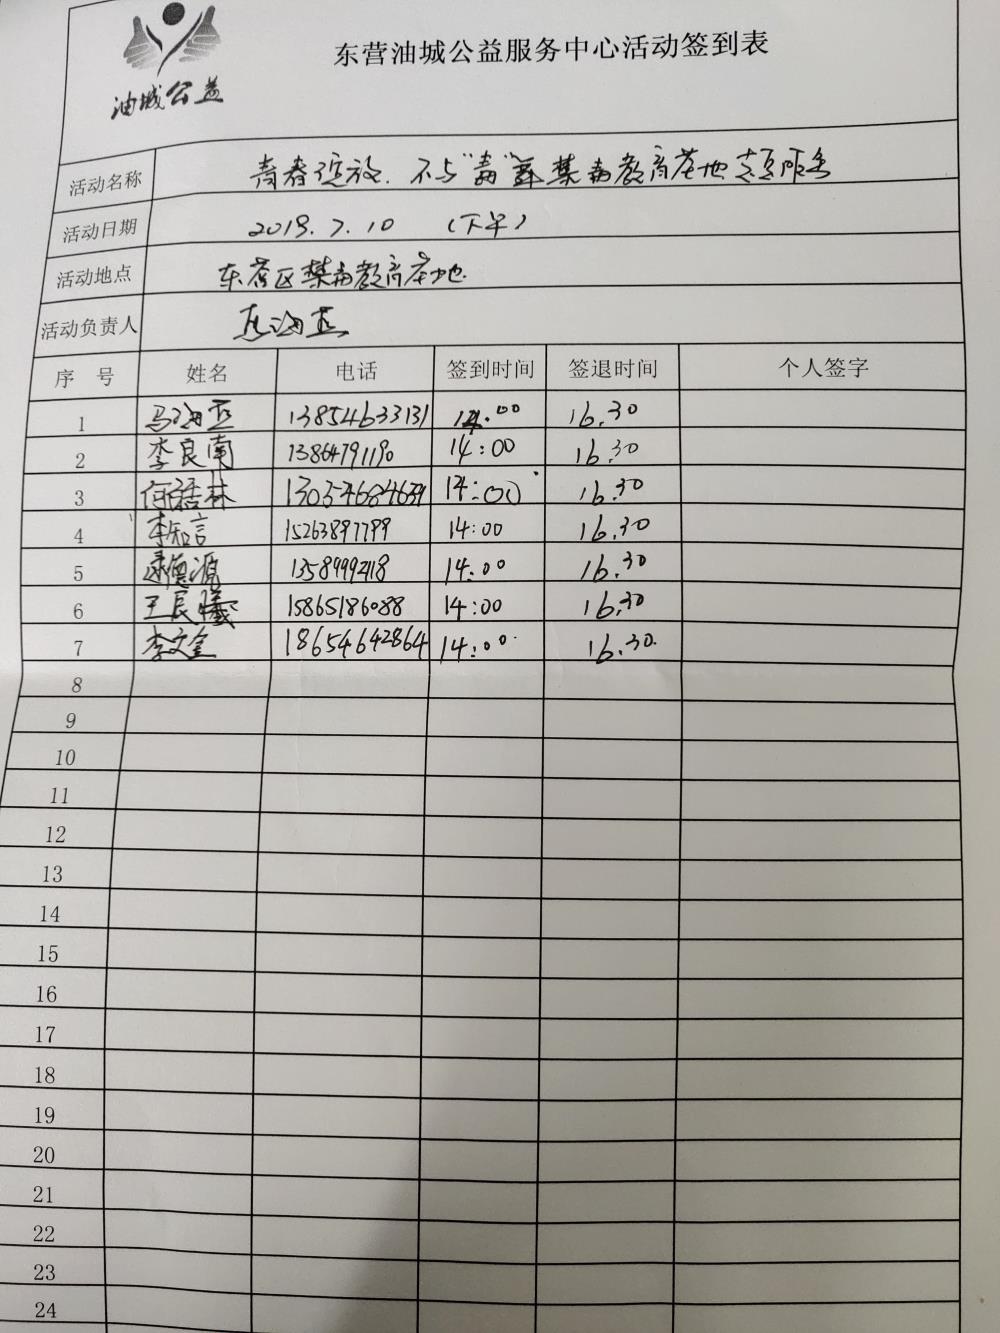 油城公益
东营油城公益服务中心活动签到表
活动名称 青春绽放.不与"毒"舞禁毒教育基地志愿服务
活动日期 2019.7.10 (下午)
活动地点 东营区禁毒教育基地
活动负责人
序 号 姓名 电话 签到时间 签退时间 个人签字
1 13854633131 14:00 16.30
2 李良南 13864791190 14:00 16.30
3 14:00 16.30
4 李知言 15263897799 14:00 16.30
5 14:00 16.30
6 15865186088 14:00 16.30
7 李文金 18654642864 14:00 16.30
8
9
10
11
12
13
14
15
16
17
18
19
20
21
22
23
24